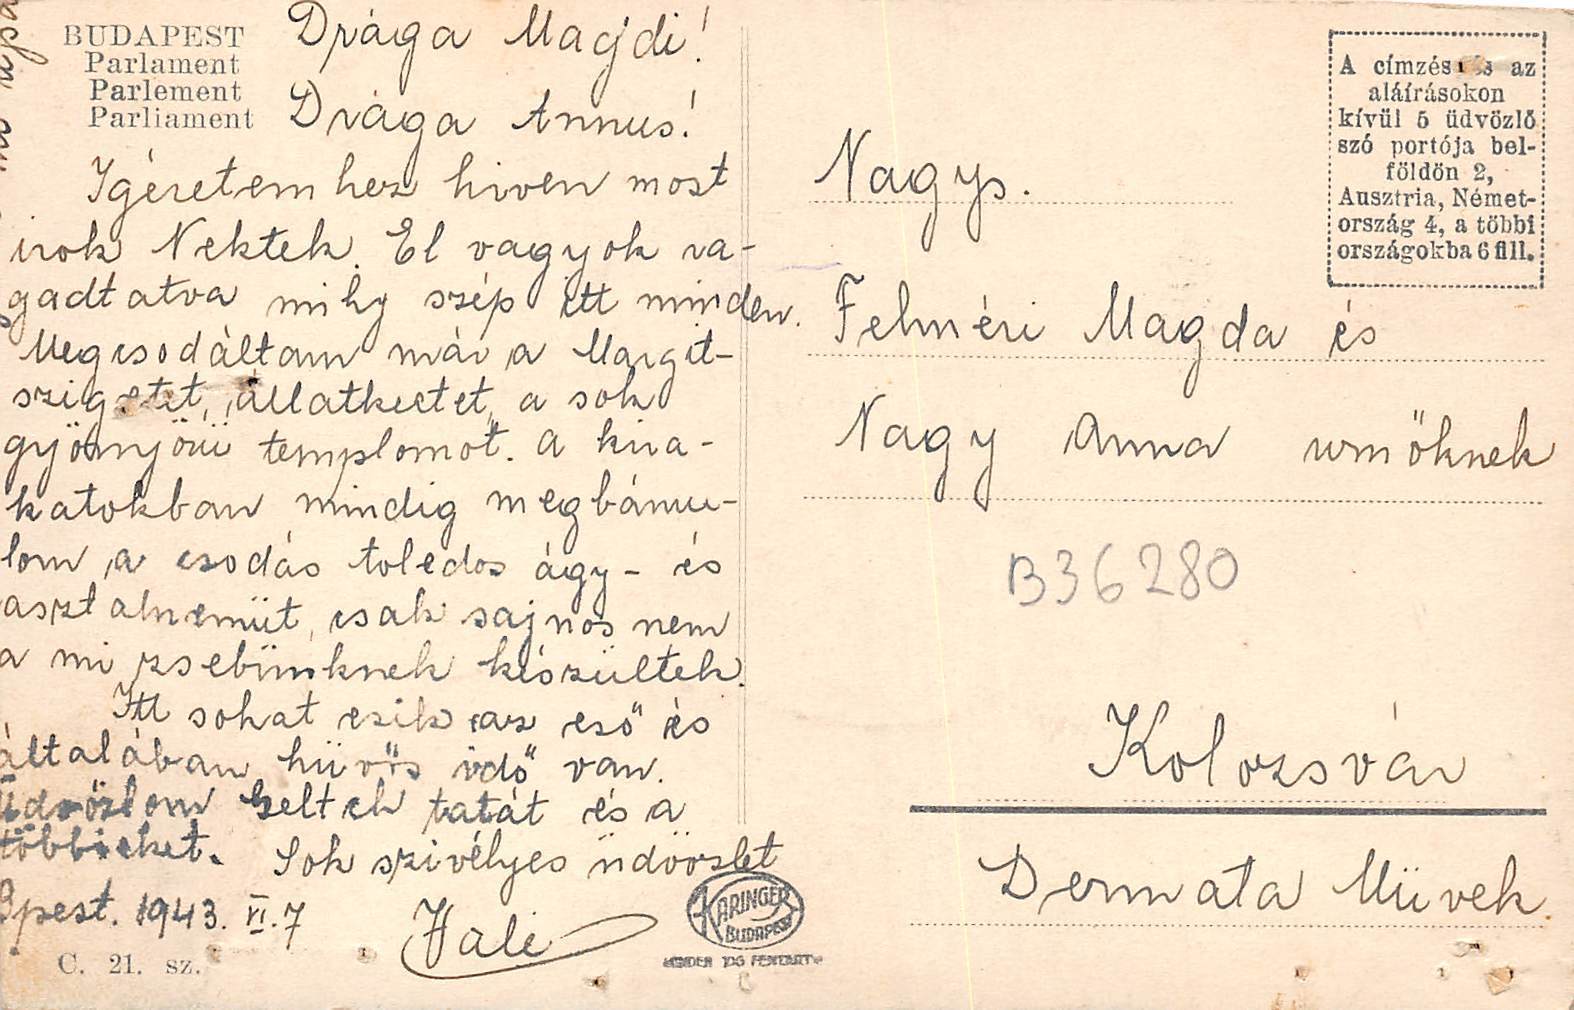 BUDAPEST
Parlament
Parlement
Parliament
Drága Magdi!
Drága Annus!
Igéretemhez hiven most
irok Nektek. El vagyok ra-
gadtatva mily szép itt minden.
Megcsodáltam már a Margit-
szigetet, állatkertet, a sok
gyönyörü templomot. A kira-
katokban mindig megbámu-
lom a csodás toledos ágy- és
asztalnemüt, csak sajnos nem
a mi zsebünknek készültek.
Itt sokat esik az eső és
általában hüvös idő van.
Üdvözlom Keltek tatát és a
többieket.
Sok szivélyes üdvözlet
Bpest. 1943. VI. 7
Vali
C. 21. sz.
KARINGER
BUDAPEST
MINDEN JOG FENTARTVA
A címzés és az
aláírásokon
kívül 5 üdvözlő
szó portója bel-
földön 2,
Ausztria, Német-
ország 4, a többi
országokba 6 fill.
Nagys.
Felméri Magda és
Nagy Anna urnőknek
B36280
Kolozsvár
Dermata Müvek